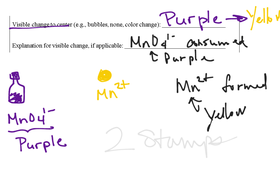 Visible change to center (e.g., bubbles, none, color change): Purple → Yellow
Explanation for visible change, if applicable: MnO4¹⁻ consumed
Purple
Mn²⁺
Mn²⁺ formed
MnO4¹⁻
Yellow
Purple
2 Stamps